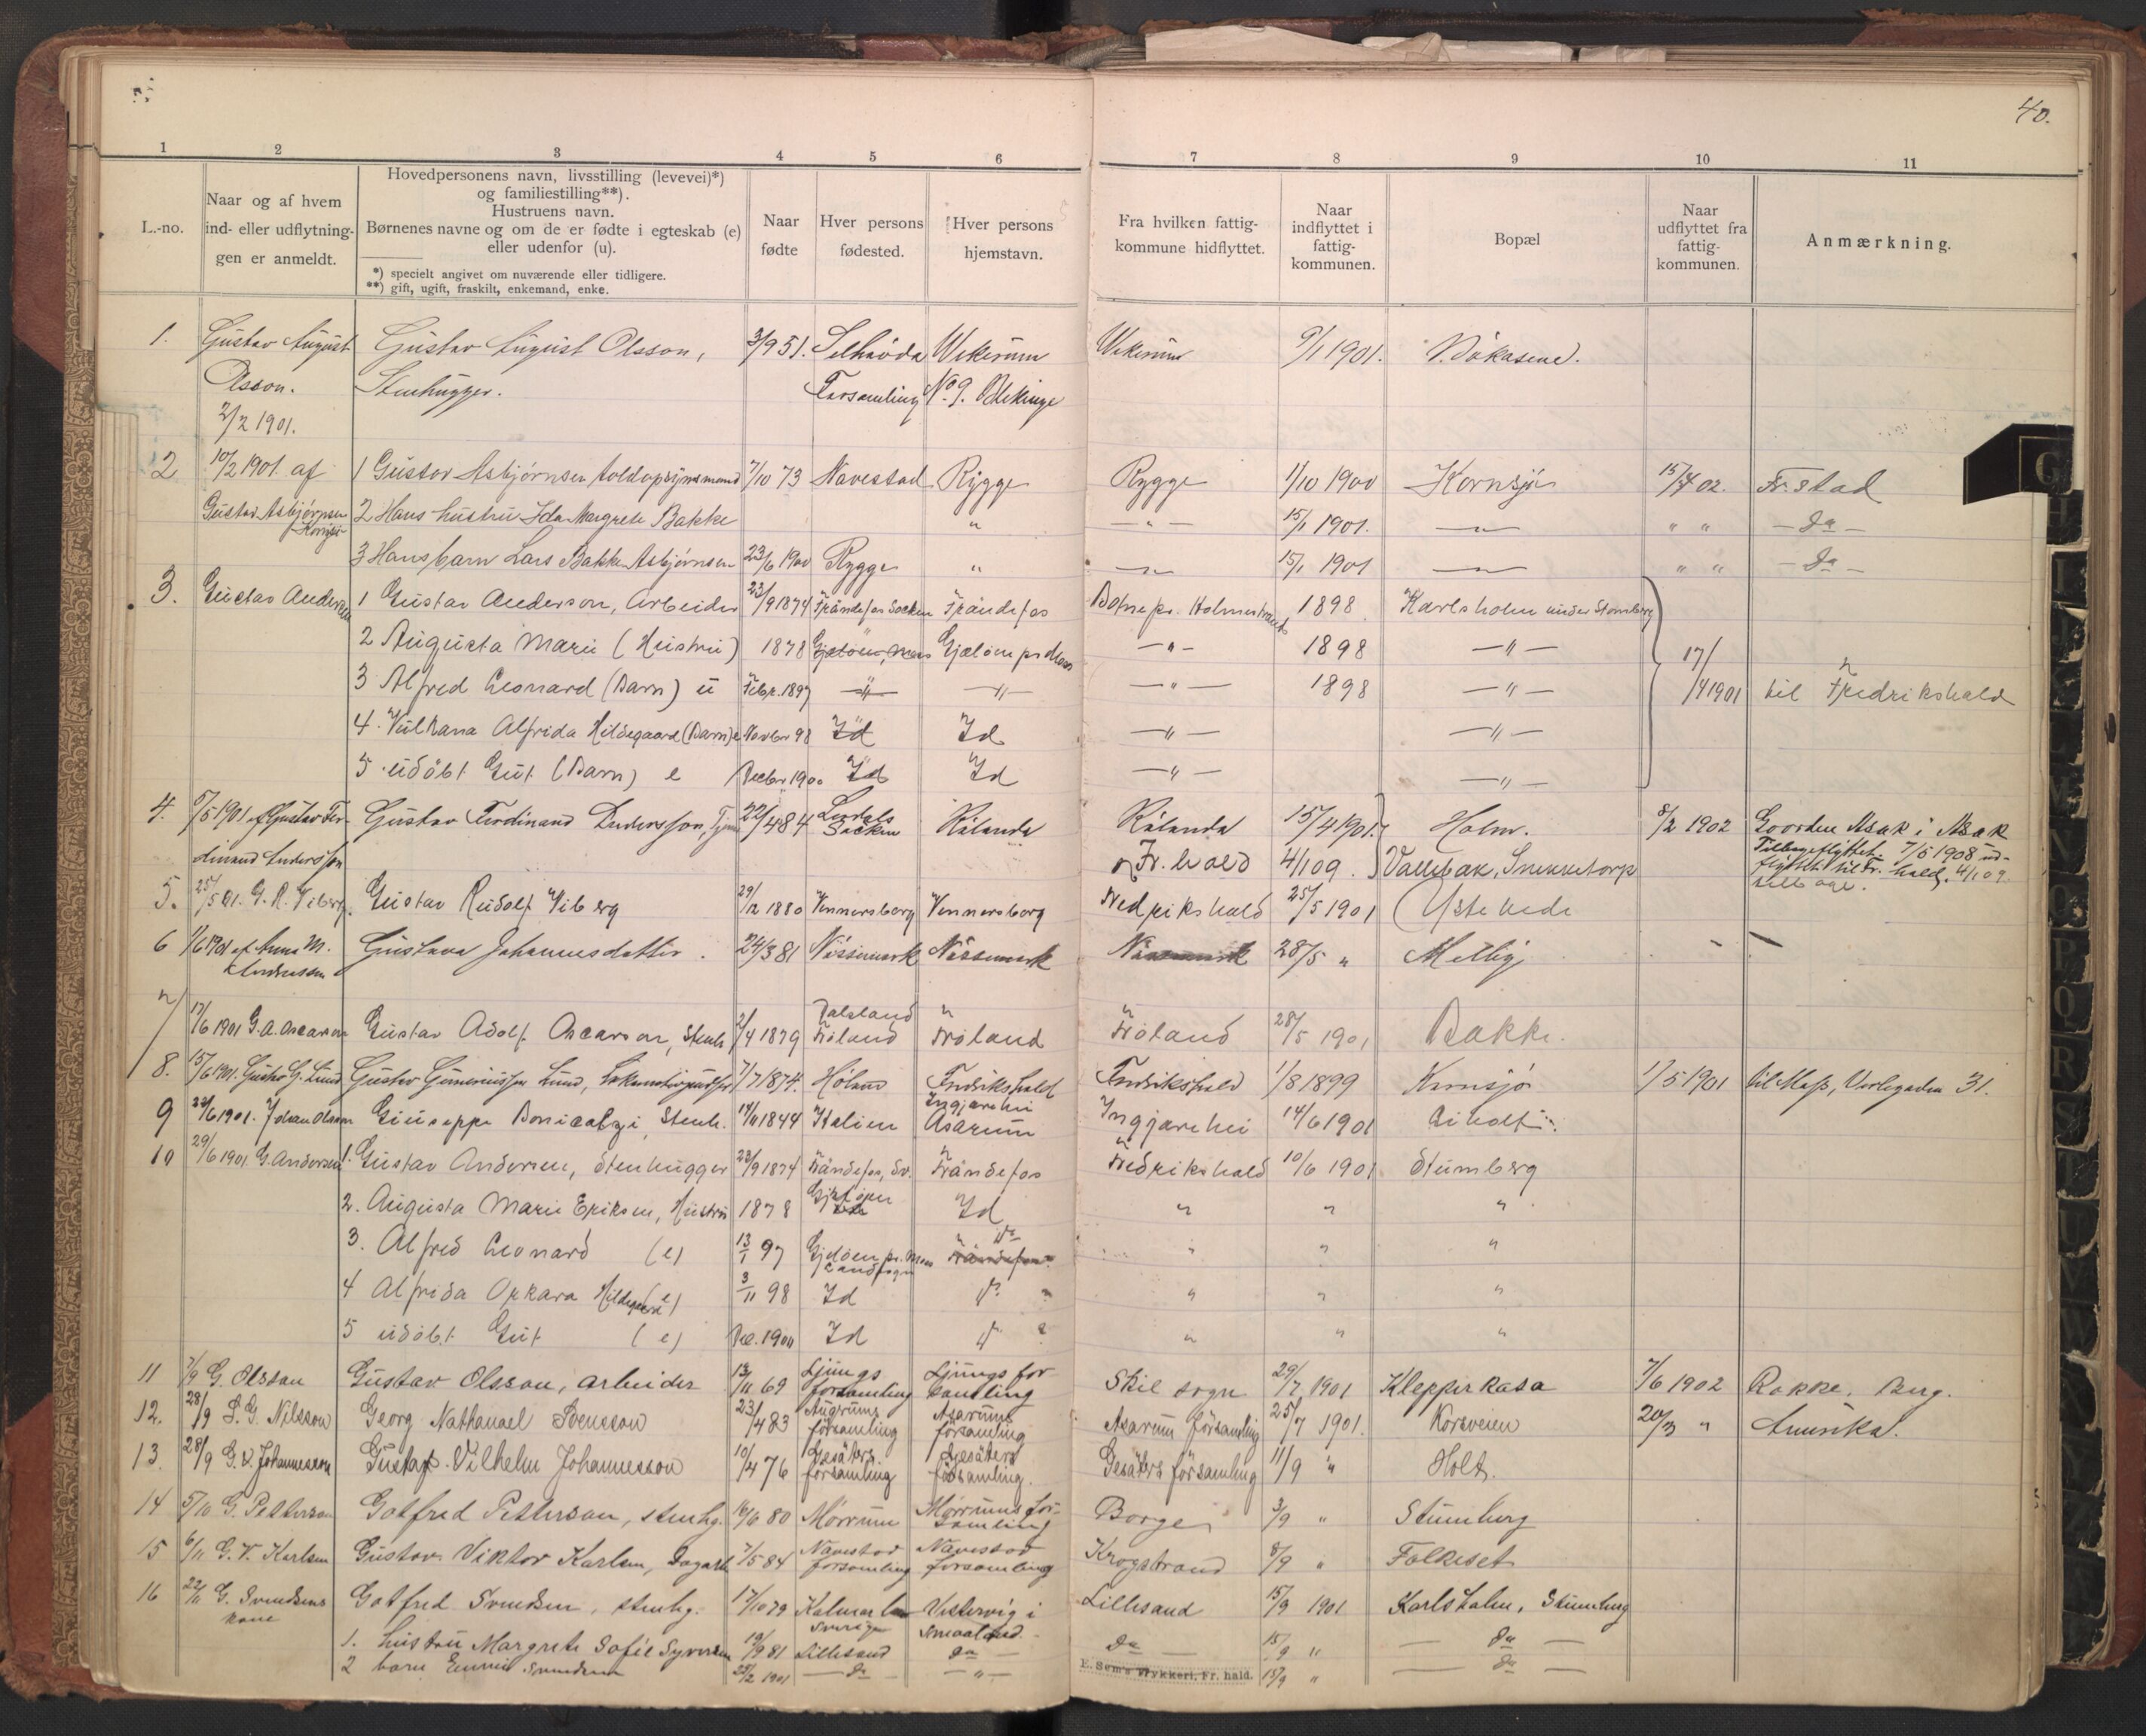 40.
1 2 3 4 5 6 7 8 9 10 11
L.-no.
Naar og af hvem
ind- eller udflytnin-
gen er anmeldt.
Hovedpersonens navn, livsstilling (levevei)*)
og familiestilling**).
Hustruens navn.
Børnenes navne og om de er fødte i egteskab (e)
eller udenfor (u).
*) specielt angivet om nuværende eller tidligere.
**) gift, ugift, fraskilt, enkemand, enke.
Naar
fødte
Hver persons
fødested.
Hver persons
hjemstavn.
Fra hvilken fattig-
kommune hidflyttet.
Naar
indflyttet i
fattig-
kommunen.
Bopæl
Naar
udflyttet fra
fattig-
kommunen.
Anmærkning.
1. Gustav August Gustav August Olsson, 3/9 51. Wekerum Wekerum 9/1 1901.
Olsson. Stenhugger. Forsamling No. 9. Blekinge
2/2 1901.
2 10/2 1901. af 1 Gustav Asbjørnsen toldopsynsmand 7/10 73 Navestad Rygge Rygge 1/10 1900 Kornsjø 15/4 02. Fr.stad
Gustav Asbjørnsen 2 Hans hustru Ida Margrete Bakke " — " — 15/1 1901. — " — " " — Do —
Kornsjø
3 Hans barn Lars Bakke Asbjørnsen 23/6 1900 Rygge " — " — 15/1 1901 — " — " " — Do —
3. Gustav Andersen 1 Gustav Anderson, Arbeider 23/9 1874 Frändefos Socken Frändefos Botne pr. Holmestrand 1898 Karlsholm under Stumberg
2 Augusta Marie (Hustru) 1878 Gjeløen, Moss Gjeløen pr Moss — " — 1898 — " — 17/
3 Alfred Leonard (Barn) u Febr. 1897 — " — — " — — " — 1898 — " — /4 1901 til Fredrikshald
4. Alfrida Hildegaard (Barn) e Novbr 98 Id Id — " — — " —
5 udøbt Gut (Barn) e Decbr. 1900 Id Id — " — — " —
4. 6/5 1901 af Gustav Fer- Gustav Ferdinand Andersson, 22/4 84 Socken Rålanda Rålanda 15/4 1901. Holm. 8/2 1902 Gaarden Asak i Asak
dinand Andersson Fr. hald 4/1 09. Vallebæk, Snekketorp Tilbageflyttet 7/5 1908 ud-
flyttet til Fr. hald, 4/1 09
tilbage.
5. 25/5 01. G. R. Viberg. Gustav Rudolf Viberg 29/12 1880 Vennersborg Vennersborg Fredrikshald 25/5 1901 Ystehede
6 1/6 1901 af Anna M. Gustava Johannesdatter. 24/3 81 Nössemark Nössemark 28/5 " Melby
Andreassen
7 17/6 1901 G. A. Oscarson Gustav Adolf Oscarson, Stenh. 2/4 1879 Dalsland
Fröland Fröland Fröland 28/5 1901 Bakke.
8. 15/6 1901. Gustav G. Lund Gustav Gunerius Lund, 7/7 1874. Høland Fredrikshald Fredrikshald 1/8 1899 Kornsjø 1/5 1901 til Moss, 31.
9 22/6 1901. Johan Olsson Giuseppe Bonicalzi, Stenh. 14/11 1844 Italien Ingjarehei
Asarum Ingjarehei 14/6 1901
10 29/6 1901 G. Andersen 1. Gustav Andersen, Stenhugger 23/9 1874 Frändefos, Sv. Frändefos Fredrikshald 10/6 1901 Stumberg
2. Augusta Marie Eriksen, Hustru 1878 Gjeløen Id " " "
3. Alfred Leonard (e) 13/1 97 Gjeløen pr. Moss
Landsogn Do " " "
4 Alfrida Oskara Hildegaard (e) 3/11 98 Id Do " " "
5 udøbt Gut (e) Dec. 1900 Id Do " " "
11 7/9 G. Olsson Gustav Olsson, arbeider 13/11 69 Ljungs
forsamling Ljungs for
samling Skee sogn 29/7 1901 Klepperkasa 7/6 1902 Rokke, Berg.
12. 28/9 S. G. Nilsson Georg Nathanael Svensson 23/4 83
forsamling Asarums
forsamling Asarum församling 25/7 1901. Korsveien 20/3 " Amerika.
13. 28/9 G. V. Johannesson Gustaf Vilhelm Johannesson 10/4 76 Gesäters
församling Gesäters
församling. Gesäters församling 11/9 " Holt.
14 5/10 G. Petterson Gotfred Petterson, stenhg. 16/6 80 Mörrum Mörrums för-
samling Borge 3/9 " Stumberg
15 6/11 G. V. Karlsen Gustav Viktor Karlsen, 7/5 84 Navestad
forsamling Navestad
forsamling Krogstrand 8/9 " Folkeset
16 22/11 G. Svendsens
kone Gotfred Svendsen, stenhg. 17/10 79 Kalmar len
Sverige Vestervig i
Smaaland Lillesand 15/9 1901 Karlsholm, Stumberg
1. hustru Margrete Sofie Syversen 19/9 81 Lillesand do — do — 15/9 " — do —
2 barn Svendsen 25/2 1901 — do — — " — 15/9 " — do —
E. Sem's Trykkeri, Fr. hald.